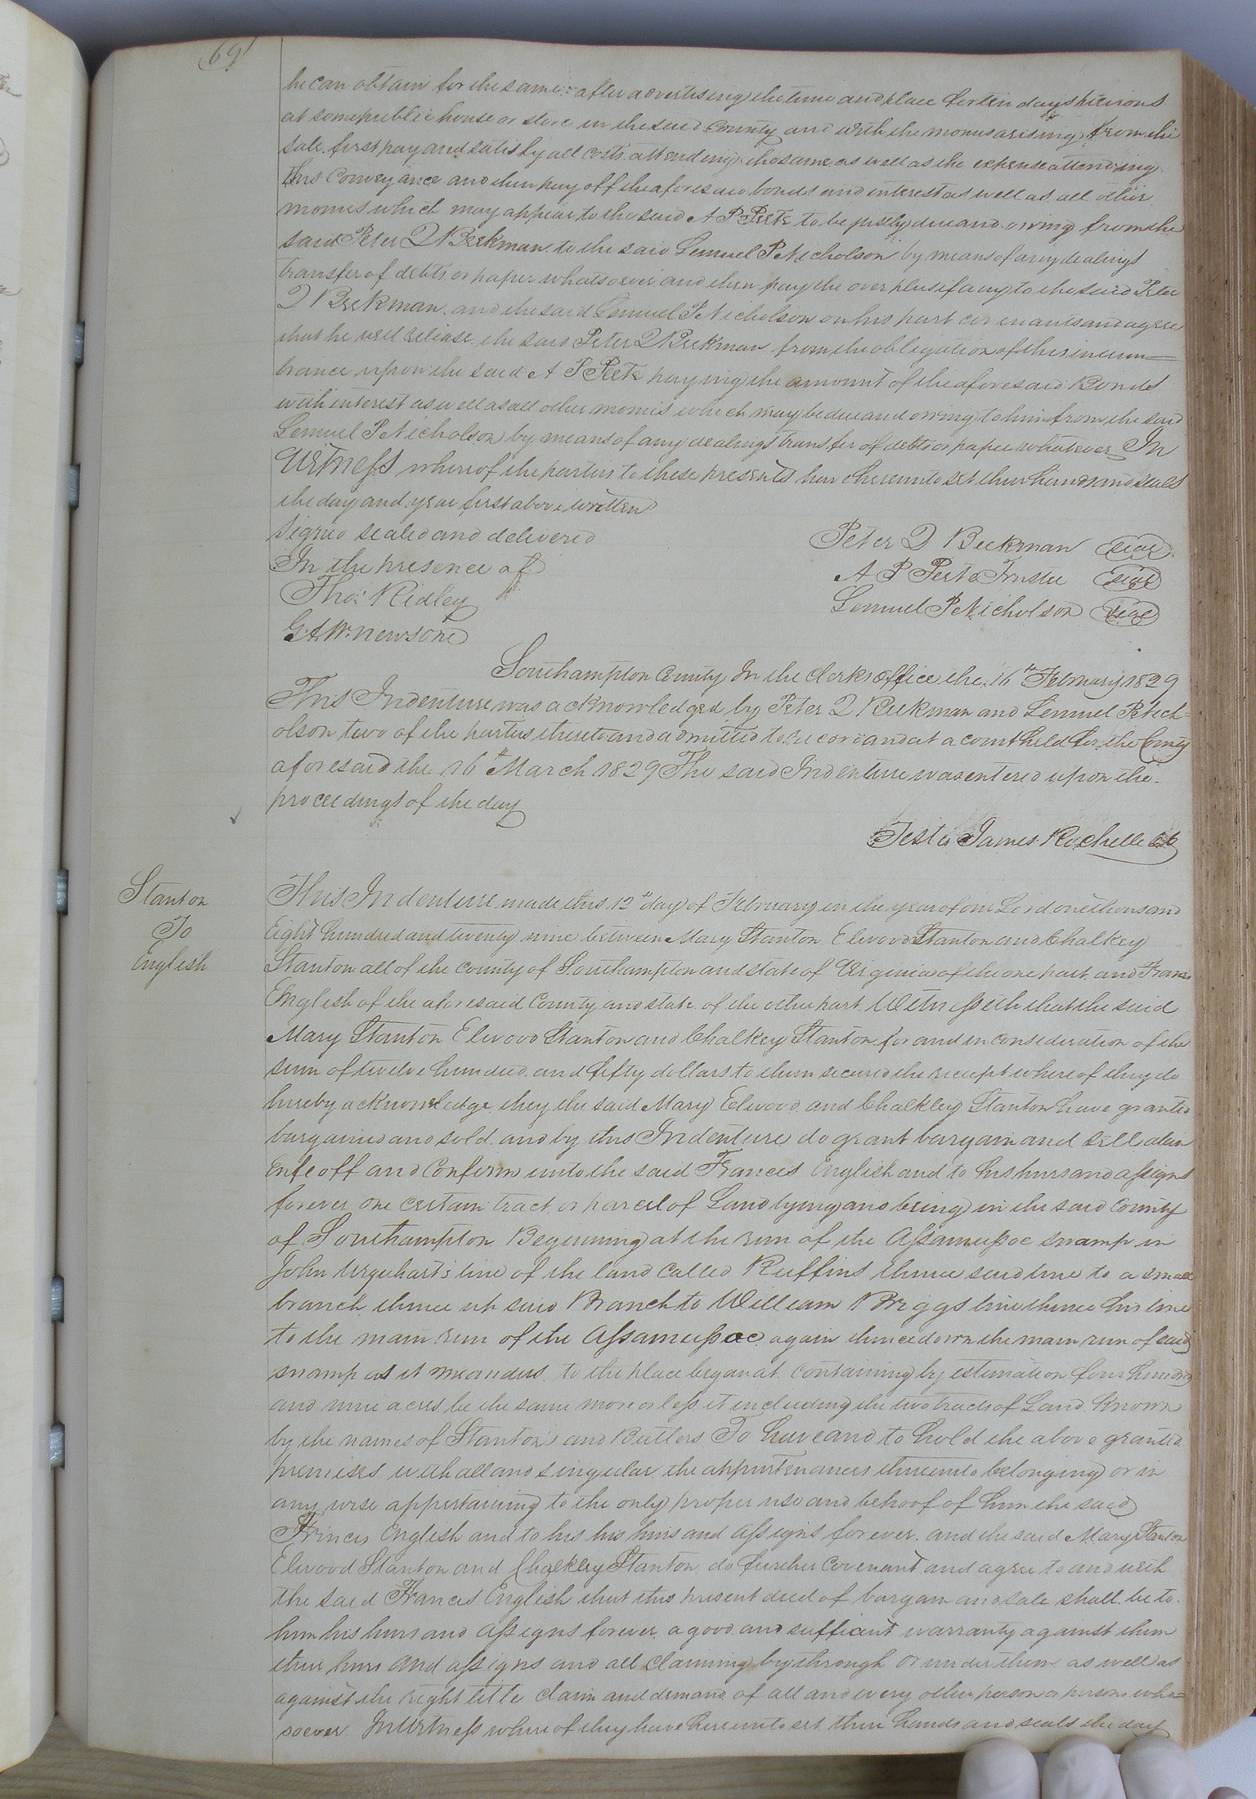 69
he can obtain for the same after advertising the time and place for ten days previous
at some public house or store in the said County and with the monies arising from the
sale first pay and satisfy all costs attending the same as well as the expense attending
this Conveyance and then pay off the aforesaid bonds and interest as well as all other
monies which may appear to the said A P Peete to be justly due and owing from the
said Peter D Beekman to the said Lemuel P Nicholson by means of any dealings
transfer of debts or paper whatsoever and then pay the over plus if any to the said Peter
D Beekman and the said Lemuel P Nicholson on his part covenants and agrees
that he will release the said Peter D Beekman from the obligation of this incum=
brance upon the said A P Peete paying the amount of the aforesaid Bonds
with interest as well as all other monies which may be due and owing to him from the said
Lemuel P Nicholson by means of any dealings transfer of debts or paper whatever In
Witness whereof the parties to these presents have hereunto set their hands and seals
the day and year first above written
Signed sealed and delivered
In the presence of
Peter D Beekman seal
A P Peete Trustee seal
Lemuel P Nicholson seal
Thos Ridley
G A W Newsome
Southampton County In the Clerks office the 16th February 1829
This Indenture was acknowledged by Peter D Beekman and Lemuel P Nich=
olson two of the parties thereto and admitted to record and at a court held for the County
aforesaid the 16th March 1829 The said Indenture was entered upon the
proceedings of the day
Teste James Rochelle
Stanton
To
English
This Indenture made this 12th day of February in the year of our Lord one thousand
Eight hundred and twenty nine between Mary Stanton Elwood Stanton and Chalkey
Stanton all of the county of Southampton and state of Virginia of the one part and Francis
English of the aforesaid County and state of the other part Witnesseth that the said
Mary Stanton Elwood Stanton and Chalkey Stanton for and in consideration of the
sum of twelve hundred and fifty dollars to them secured the receipt whereof they do
hereby acknowledge they the said Mary Elwood and Chalkley Stanton have granted
bargained and sold and by this Indenture do grant bargain and sell alien
enfeoff and Confirm unto the said Francis English and to his heirs and assigns
forever one certain tract or parcel of Land lying and being in the said County
of Southampton Beginning at the run of the Assamusoc swamp in
John Urquhart's line of the land called Ruffins thence said line to a small
branch thence up said Branch to William Briggs line thence his line
to the main run of the Assamusoc again thence down the main run of said
swamp as it meanders to the place began at containing by estimation four hundred
and nine acres be the same more or less it including the two tracts of Land known
by the names of Stantons and Butlers To have and to hold the above granted
premises with all and singular the appurtenances thereunto belonging or in
any wise appertaining to the only proper use and behoof of him the said
Francis English and to his his heirs and assigns forever and the said Mary Stanton
Elwood Stanton and Chalkley Stanton do further covenant and agree to and with
the said Francis English that this present deed of bargain and sale shall be to
him his heirs and assigns forever a good and sufficient warranty against them
their heirs and assigns and all claiming by through or under them as well as
against the right title claim and demand of all and every other person or persons who=
soever In Witness whereof they have hereunto set their hands and seals the day